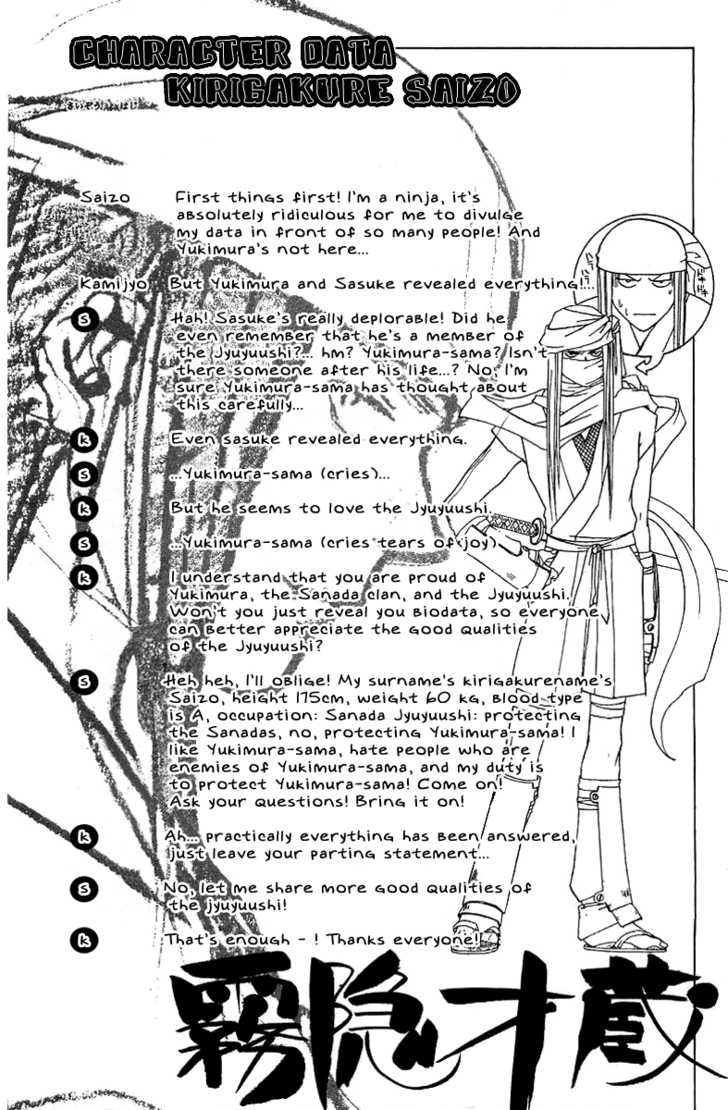 CHARACTER DATA
KIRIGAKURE SAIZO
Saizo First things first! I'm a ninja, it's
absolutely ridiculous for me to divulge
my data in front of so many people! And
Yukimura's not here...
Kamijyo But Yukimura and Sasuke revealed everything!..
S Hah! Sasuke's really deplorable! Did he
even remember that he's a member of
the Jyuyuushi?... hm? Yukimura-sama? Isn't
there someone after his life...? No, I'm
sure Yukimura-sama has thought about
this carefully...
K Even sasuke revealed everything.
S ...Yukimura-sama (cries)...
K But he seems to love the Jyuyuushi.
S ...Yukimura-sama (cries tears of joy)
K I understand that you are proud of
Yukimura, the Sanada clan, and the Jyuyuushi.
Won't you just reveal you biodata, so everyone
can better appreciate the good qualities
of the Jyuyuushi?
S Heh heh, I'll oblige! My surname's kirigakurename's
Saizo, height 175cm, weight 60 kg, blood type
is A, occupation: Sanada Jyuyuushi: protecting
the Sanadas, no, protecting Yukimura-sama! I
like Yukimura-sama, hate people who are
enemies of Yukimura-sama, and my duty is
to protect Yukimura-sama! Come on!
Ask your questions! Bring it on!
K Ah... practically everything has been answered,
just leave your parting statement...
S No, let me share more good qualities of
the jyuyuushi!
K That's enough - ! Thanks everyone!
霧隠才蔵